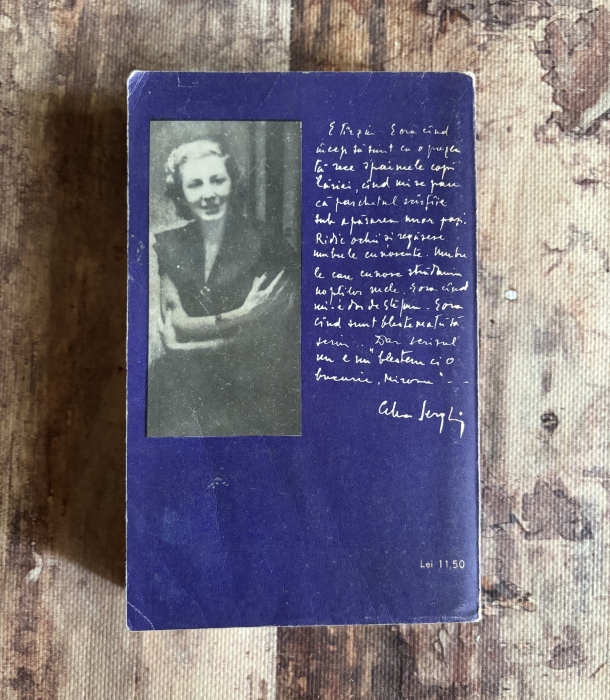 E tîrziu. E ora cînd
încep să simt ca o pregea
tă rece spaimele copi
lăriei, cînd mi se pare
că parchetul scîrțîie
sub apăsarea unor pași.
Ridic ochii și regăsesc
umbrele cunoscute. Umbre
le care cunosc strădania
nopților mele. E ora cînd
mi-e dor de Ștefan. E ora
cînd sunt blestemată să
scriu... Dar scrisul
nu e un "blestem ci o
bucurie, Mirona" - - -
Cella Serghi
Lei 11,50